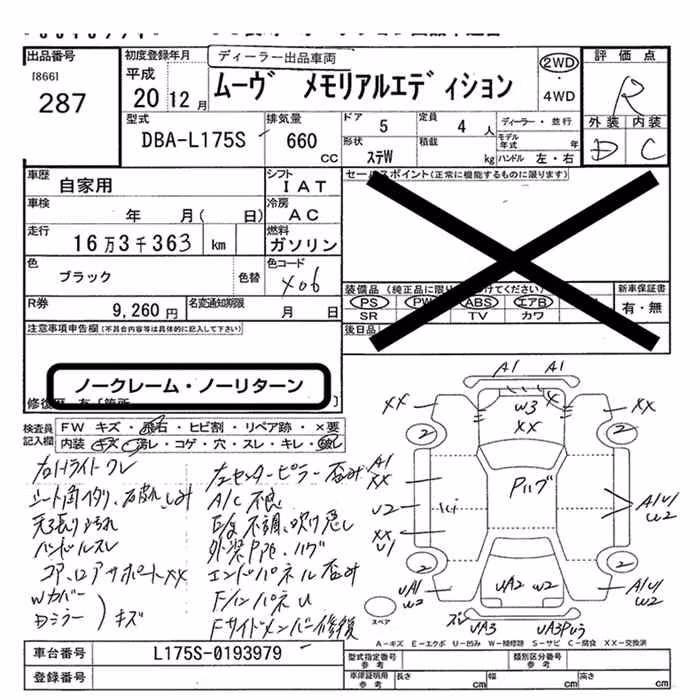 出品番号
[866]
287
初度登録年月
平成
20 12 月
ディーラー出品車両
ムーヴ メモリアルエディション
2WD
4WD
評価点
R
外装 内装
D C
型式
DBA-L175S
排気量
660
CC
ドア 5
定員 4 人
形状 ステW
積載 kg
ディーラー・並行
モデル年式 年
ハンドル 左・右
車歴
自家用
シフト
IAT
車検
年 月( 日)
冷房
AC
走行
16万3千363 km
燃料
ガソリン
色
ブラック
色替
色コード
X06
R券
9,260 円
名変通知期限
月 日
セールスポイント(正常に機能するものに限ります)
装備品
PS PW ABS エアB
SR TV カワ
新車保証書
有・無
後日品
注意事項申告欄(不具合内容等は具体的に記入して下さい)
ノークレーム・ノーリターン
検査員記入欄
FW キズ・飛石・ヒビ割・リペア跡・×要
内装 キズ・汚レ・コゲ・穴・スレ・キレ・破レ
左Hライトワレ
天張り汚れ
ハンドルスレ
コア、ロアサポートXX
Wカバー
Dミラー
キズ
左センターピラー歪み
A/C不良
エンドパネル歪み
FインパネU
Fサイドメンバー修復
A1 A1
XX W3 XX XX
2 2
A1
XX
U2
XX
U1
Pハゲ
A1U1
W2
2 2
UA1
W2
UA2 W2
A1U1
W2
スペア
ズレ
UA3
A-キズ E-エクボ U-凹み W-補修跡 S-サビ C-腐食 XX-交換済
車台番号
L175S-0193979
登録番号
型式指定番号
参考
類別区分番号
参考
車庫証明用
参考
長さ cm
幅 cm
高さ cm